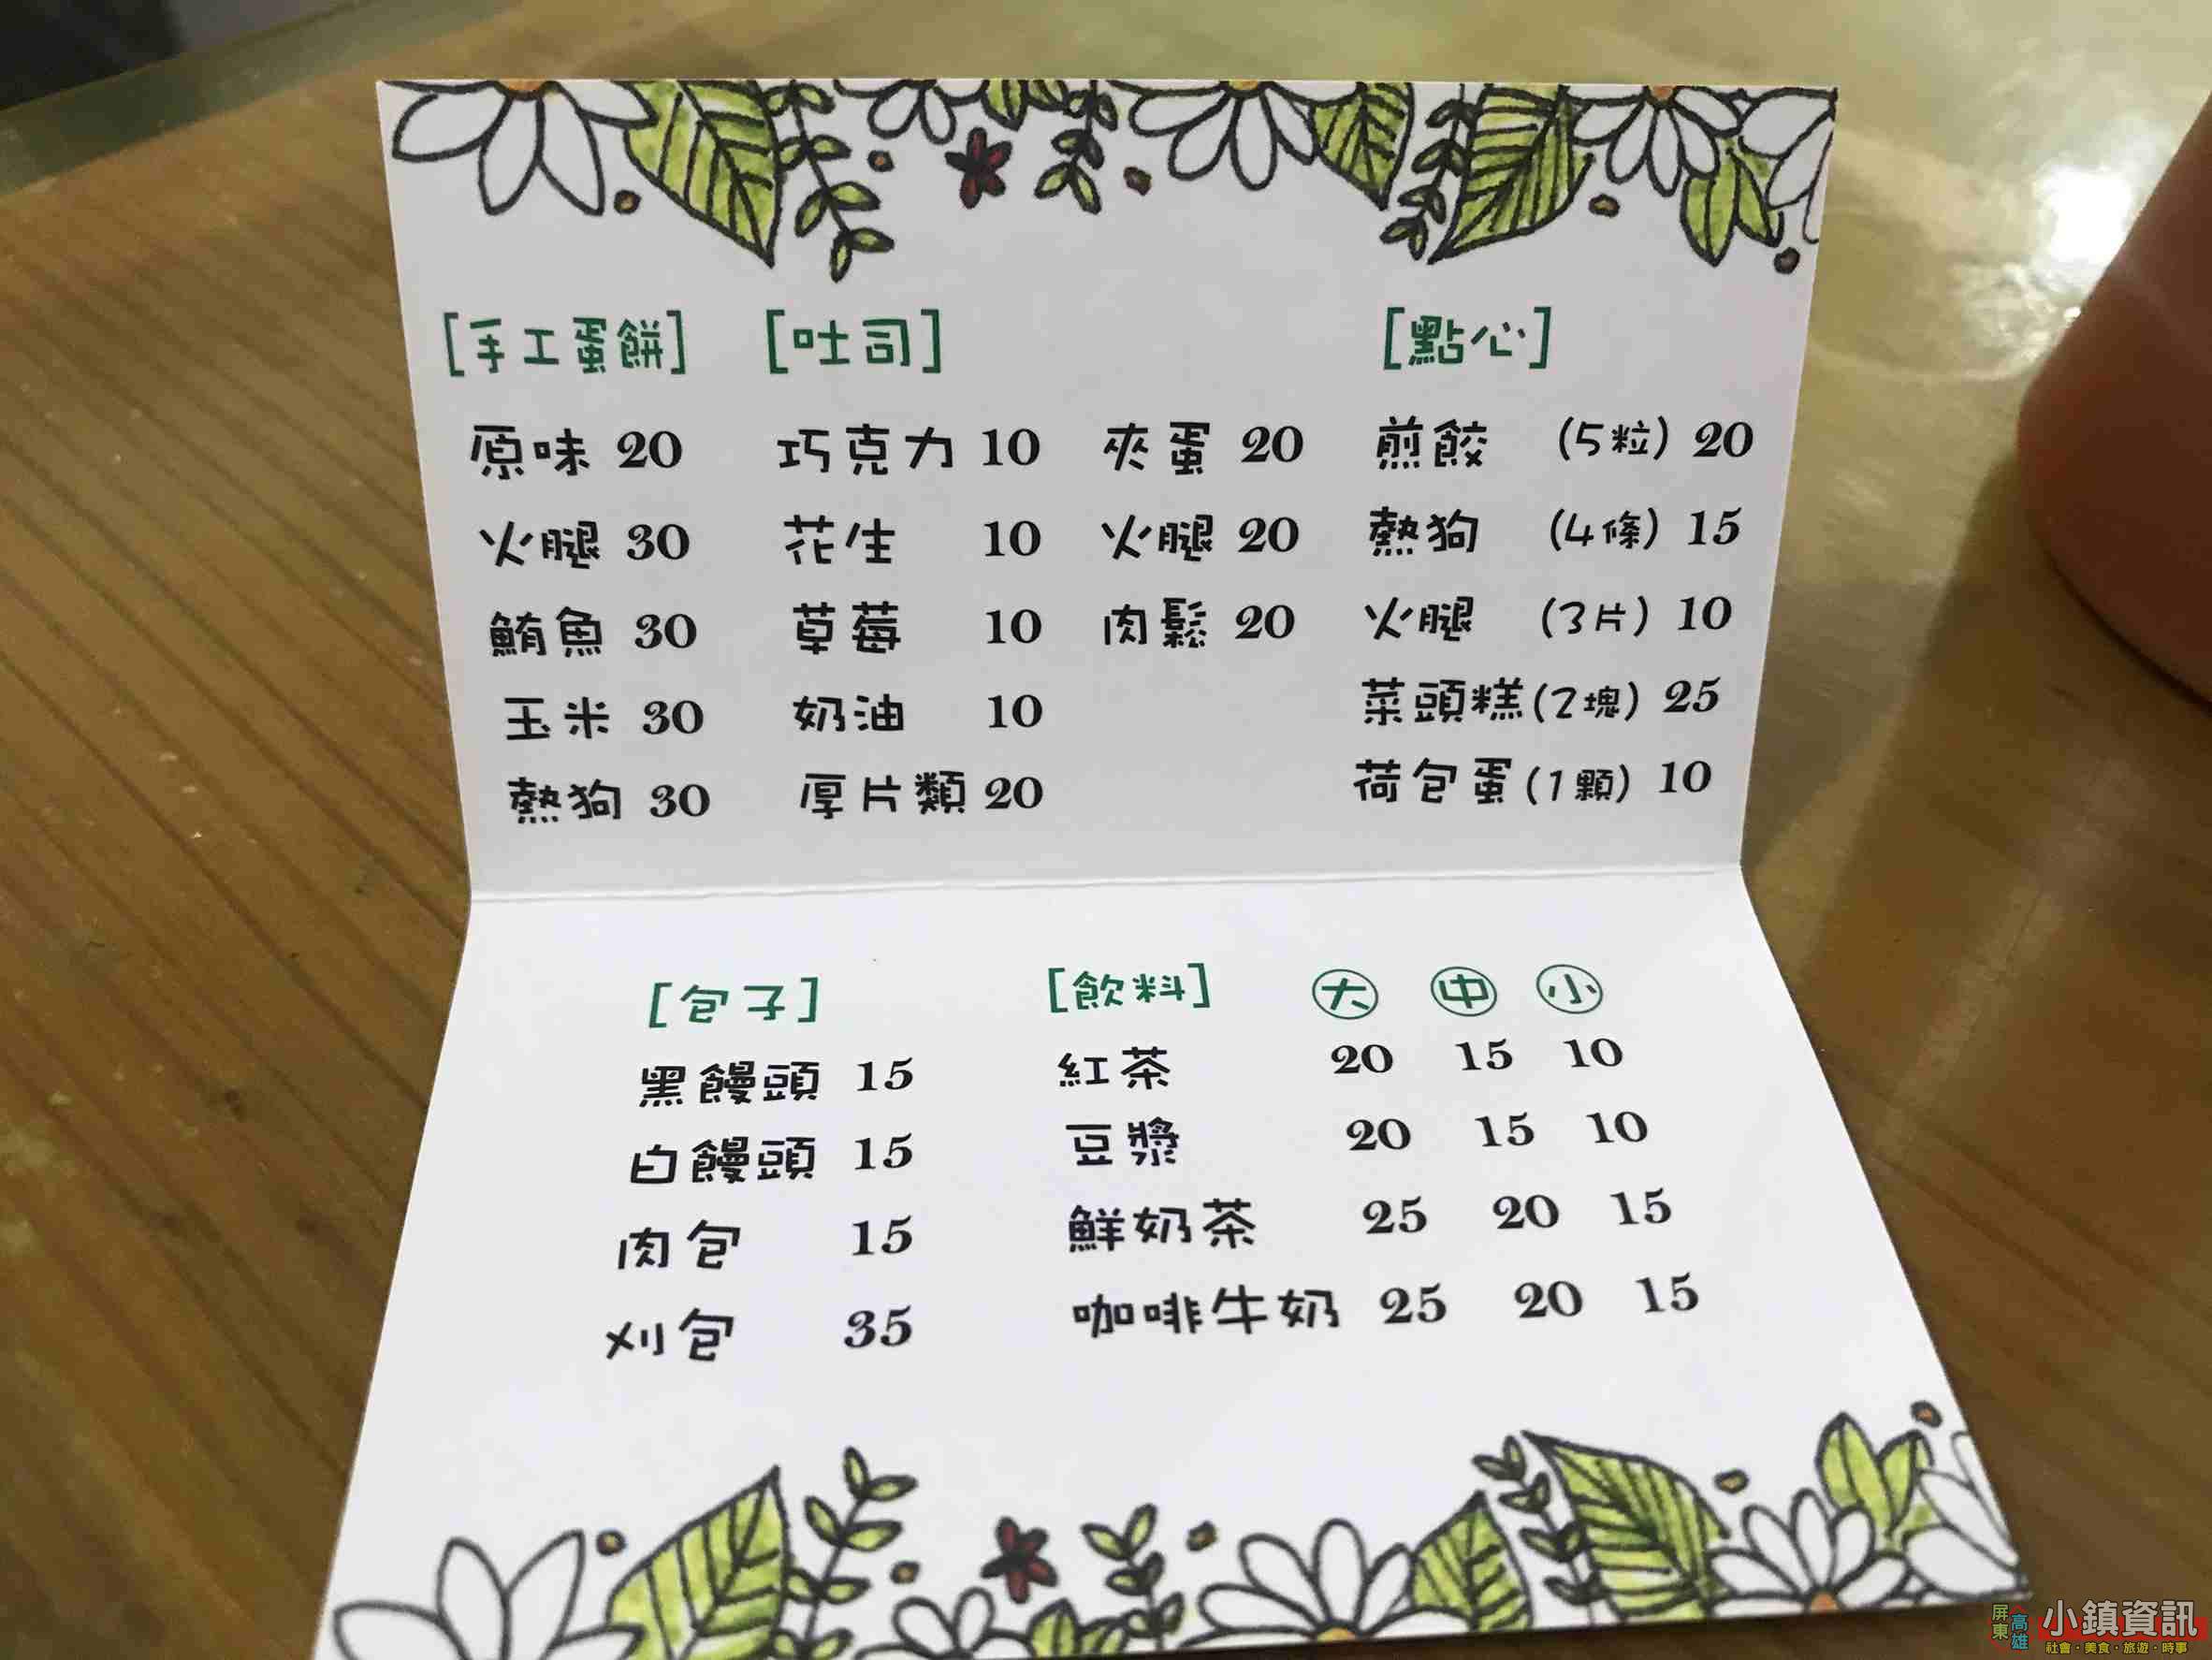 [手工蛋餅] [吐司] [點心]
原味 20 巧克力 10 夾蛋 20 煎餃 (5粒) 20
火腿 30 花生 10 火腿 20 熱狗 (4條) 15
鮪魚 30 草莓 10 肉鬆 20 火腿 (3片) 10
玉米 30 奶油 10 菜頭糕(2塊) 25
熱狗 30 厚片類 20 荷包蛋(1顆) 10
[包子] [飲料] 大 中 小
黑饅頭 15 紅茶 20 15 10
白饅頭 15 豆漿 20 15 10
肉包 15 鮮奶茶 25 20 15
刈包 35 咖啡牛奶 25 20 15
屏東 高雄 小鎮資訊
社會・美食・旅遊・時事